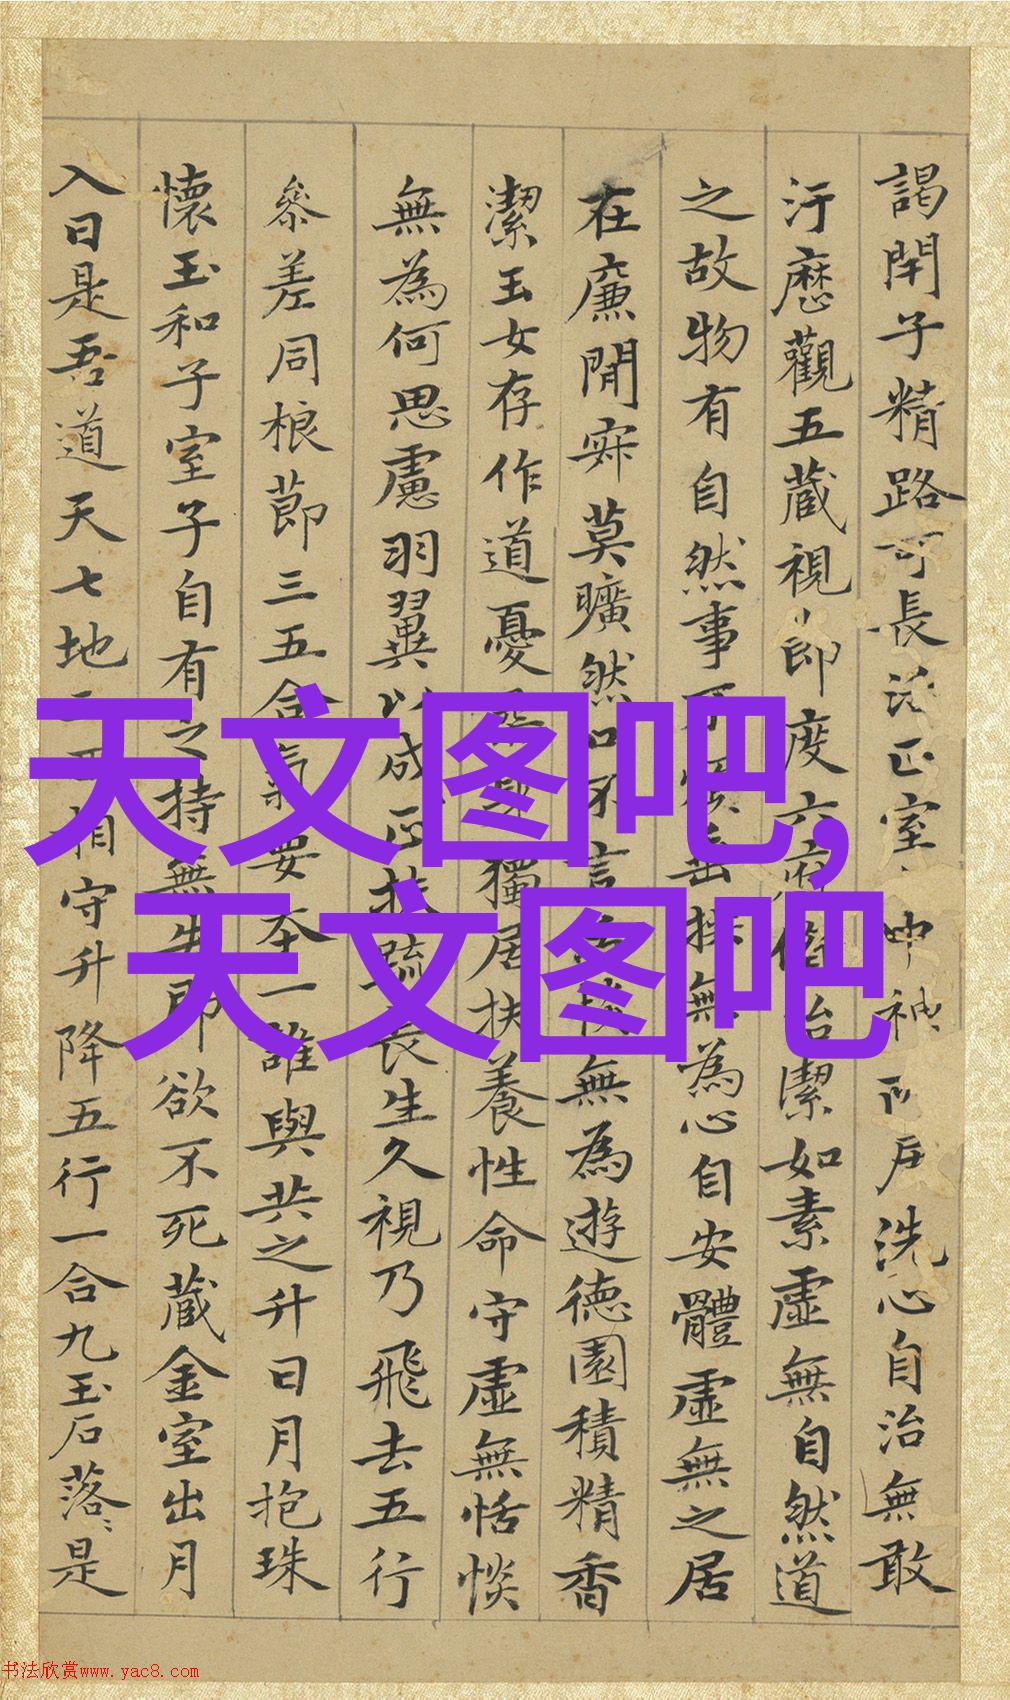 謁閇子精路可長活正室中神所居洗心自治無敢
汙歷觀五藏視節度六府脩治潔如素虛無自然道
之故物有自然事不煩垂拱無為心自安體虛無之居
在廉閒寂莫曠然口不言無為遊德園積精香
潔玉女存作道憂身獨居扶養性命守虛無恬惔
無為何思慮羽翼以成正扶疏長生久視乃飛去五行
參差同根節三五合氣要本一誰與共之升日月抱珠
懷玉和子室子自有之持無失即欲不死藏金室出月
入日是吾道天七地三相守升降五行一合九玉石落〻是
天文图吧,
天文图吧
书法欣赏www.yac8.com